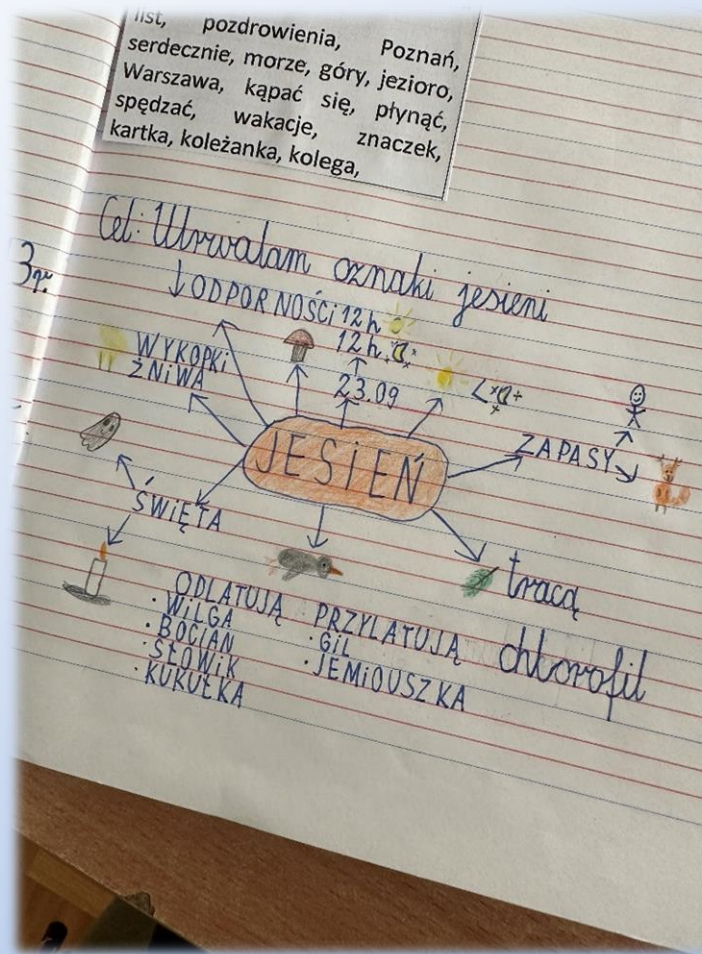 list, pozdrowienia, Poznań,
serdecznie, morze, góry, jezioro,
Warszawa, kąpać się, płynąć,
spędzać, wakacje, znaczek,
kartka, koleżanka, kolega,
Cel: Utrwalam oznaki jesieni
↓ODPORNOŚCi 12h
12h
23.09
WYKOPKi
ŻNiWA
<
ZAPASY
JESiEŃ
ŚWIĘTA
tracą
chlorofil
ODLATUJĄ
· WiLGA
· BOCiAN
· SŁOWiK
· KUKUŁKA
PRZYLATUJĄ
· GiL
· JEMiOUSZKA